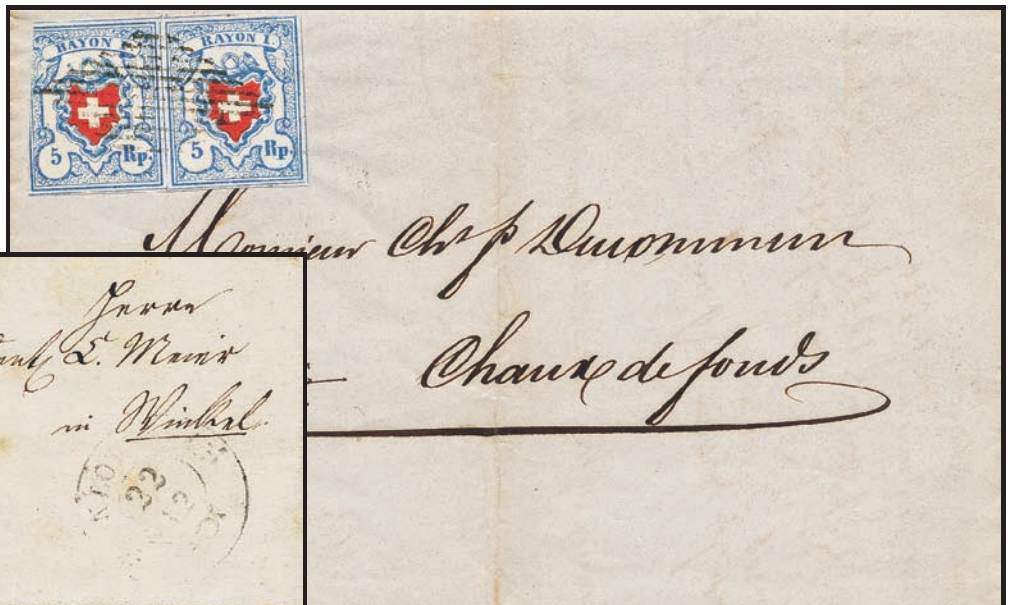 RAYON I.
5 Rp.
RAYON I.
5 Rp.
Monsieur Chs. Ducommun
Chaux de fonds
Herrn
L. Meier
in Winkel.
22
12